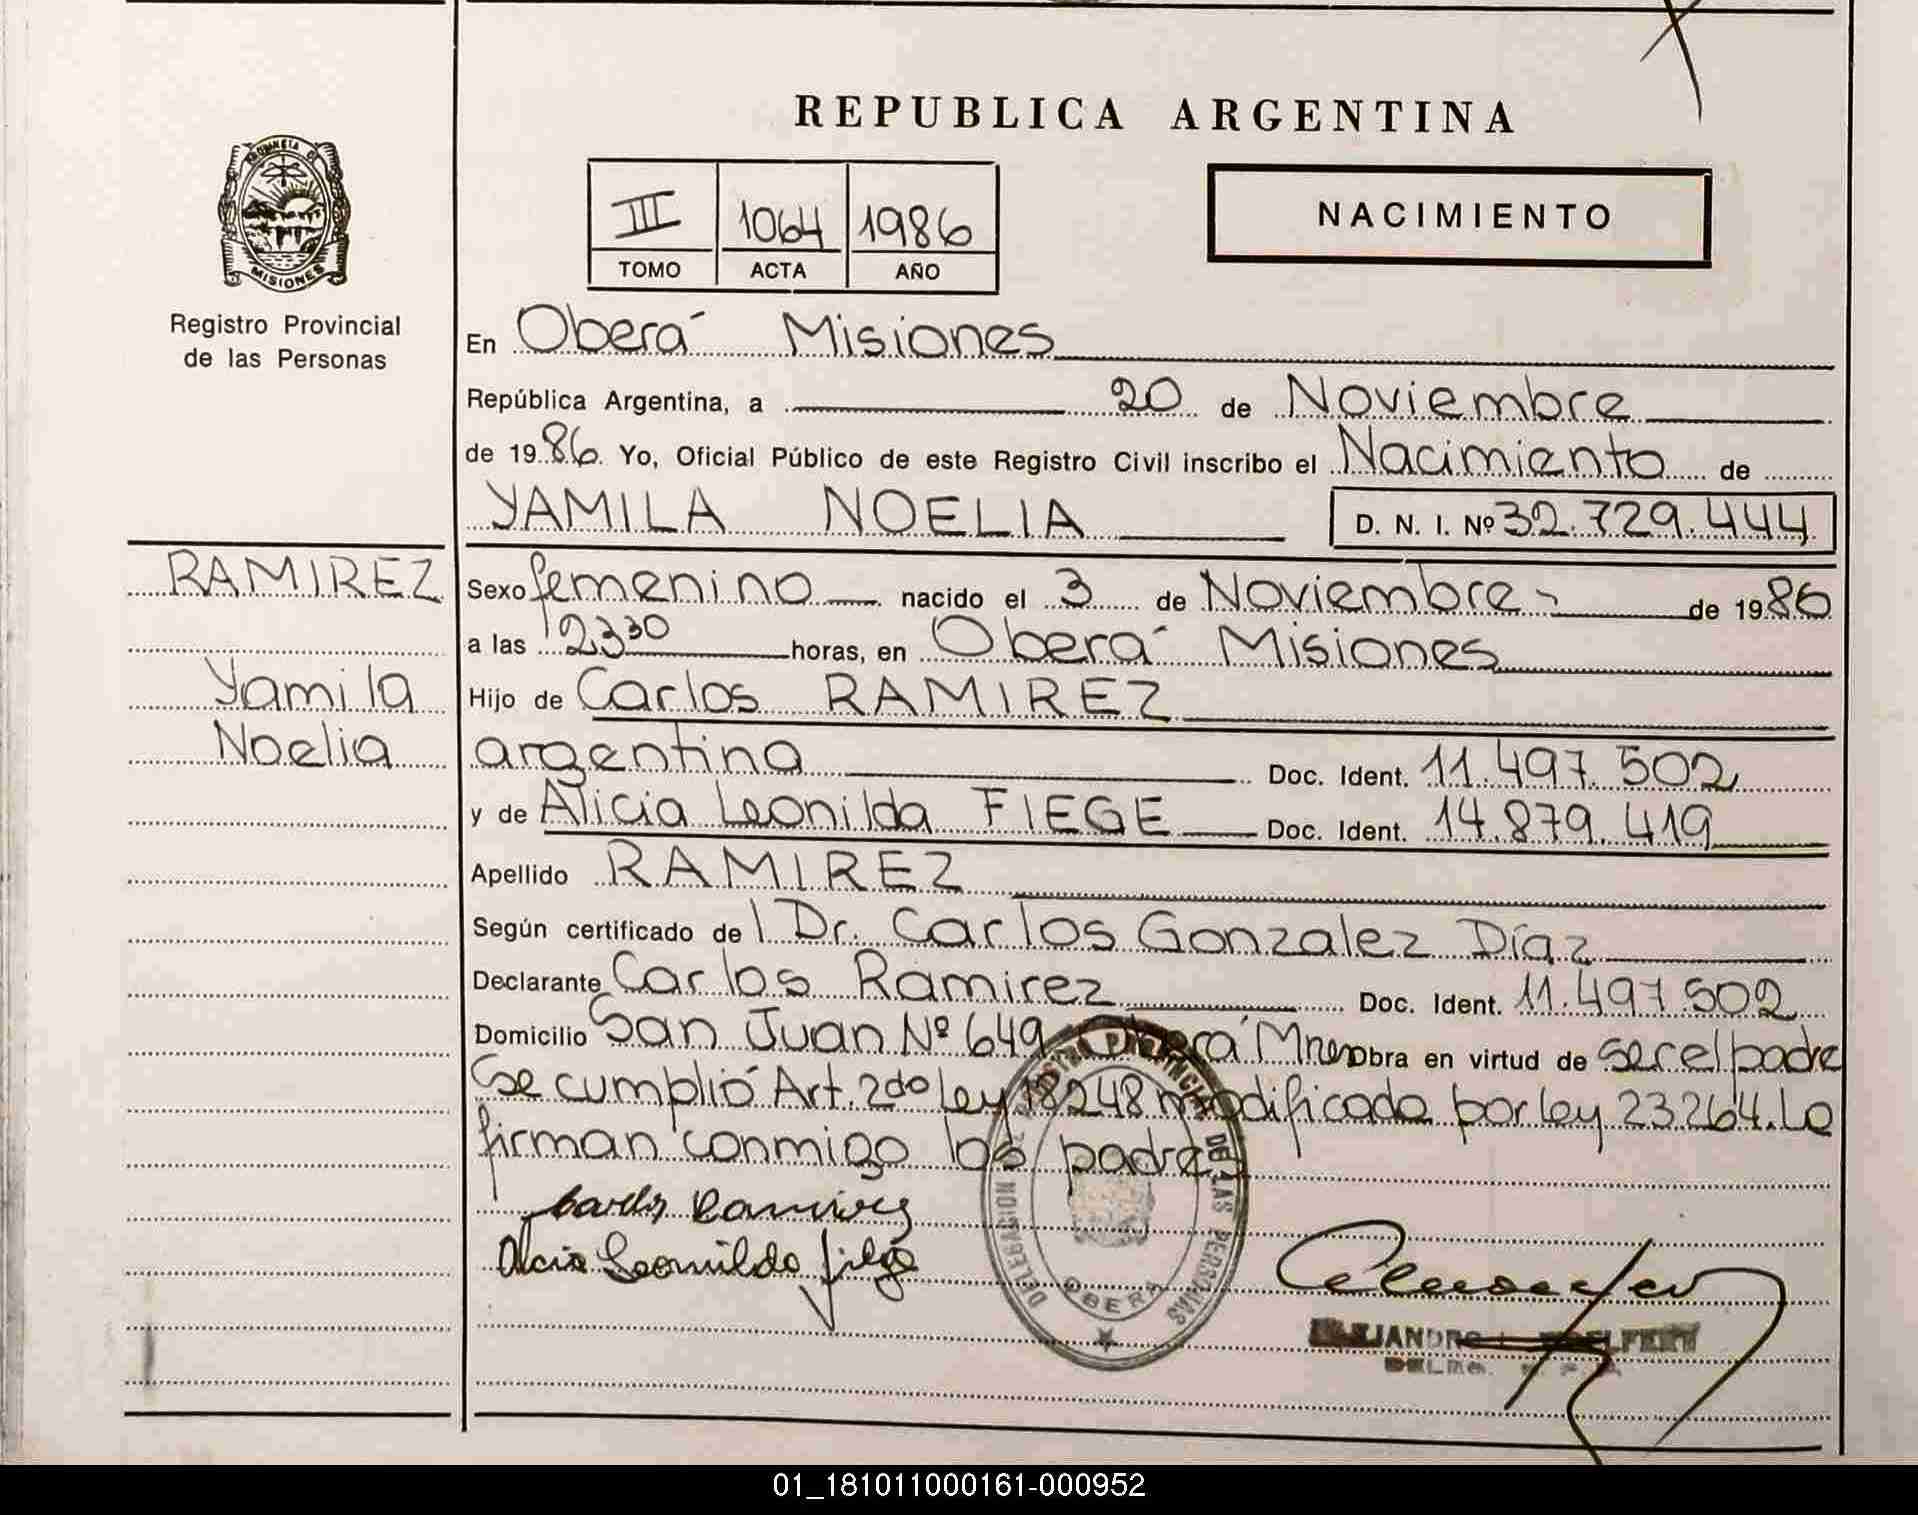 REPUBLICA ARGENTINA
PROVINCIA DE
MISIONES
Registro Provincial
de las Personas
III 1064 1986
TOMO ACTA AÑO
NACIMIENTO
En Oberá Misiones
República Argentina, a 20 de Noviembre
de 1986. Yo, Oficial Público de este Registro Civil inscribo el Nacimiento de
YAMILA NOELIA D. N. I. Nº 32.729.444
RAMIREZ
Yamila
Noelia
Sexo femenino nacido el 3 de Noviembre de 1986
a las 23 30 horas, en Oberá Misiones
Hijo de Carlos RAMIREZ
argentina Doc. Ident. 11.497.502
y de Alicia Leonilda FIEGE Doc. Ident. 14.879.419
Apellido RAMIREZ
Según certificado de Dr. Carlos Gonzalez Díaz
Declarante Carlos Ramirez Doc. Ident. 11.497.502
Domicilio San Juan Nº 649 Oberá Mnes Obra en virtud de ser el padre
Se cumplió Art. 2do ley 18248 modificada por ley 23264. La
firman conmigo los padres
Carlos Ramirez
Alicia Leonilda Fiege
DELEGACION REGISTRO PROVINCIAL DE LAS PERSONAS
OBERA
01_181011000161-000952